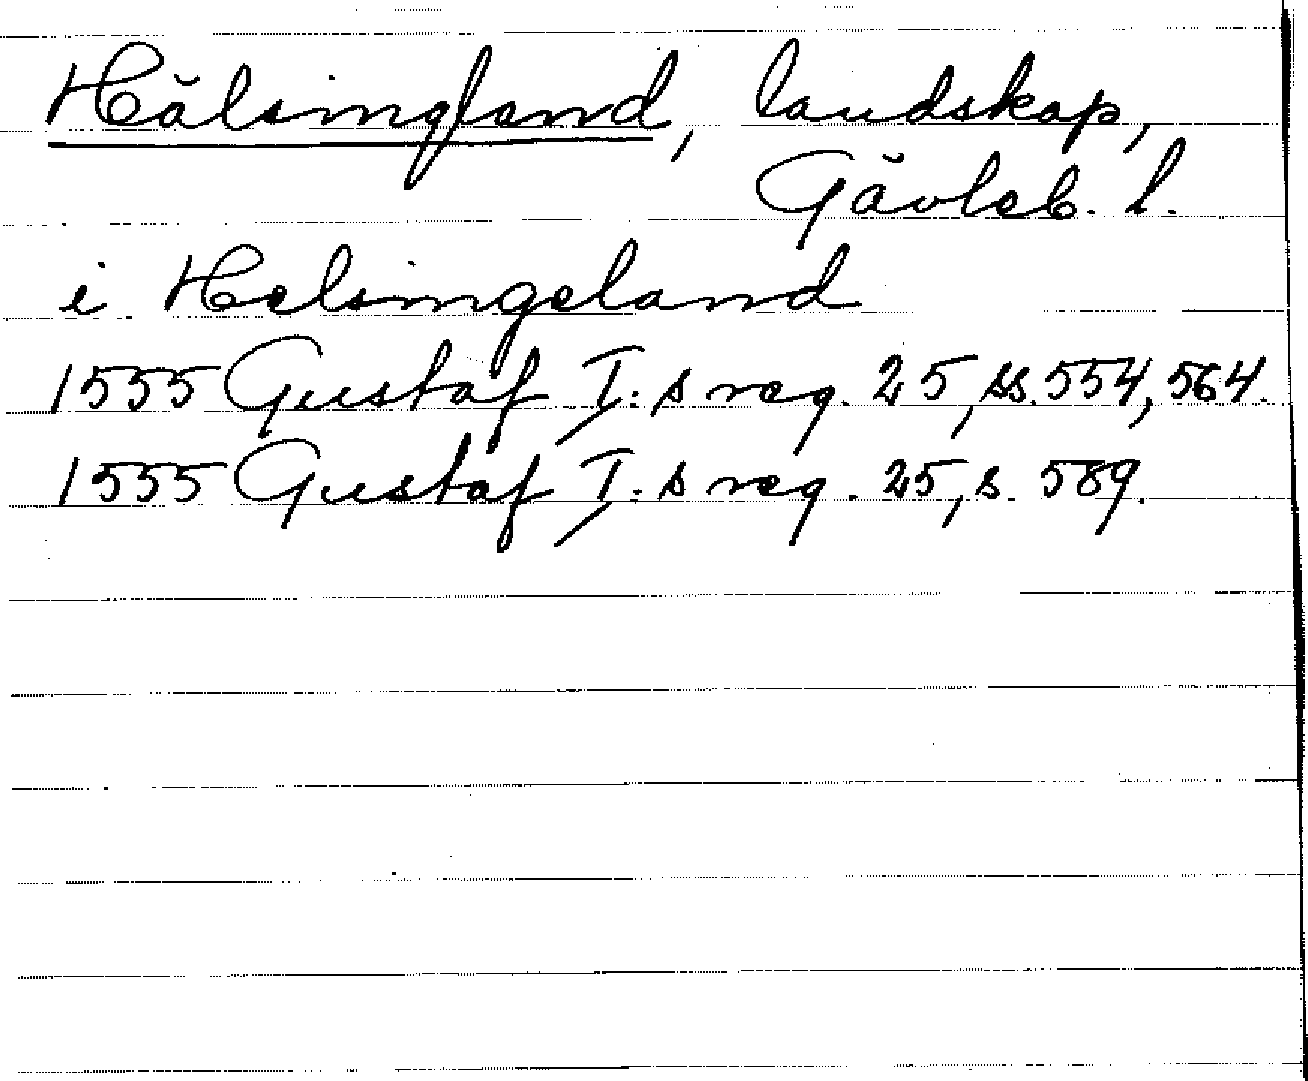 Hälsingland, landskap,
Gävleb. l.
i Helsingeland
1555 Gustaf I:s reg. 25, ss. 554, 564.
1555 Gustaf I:s reg. 25, s. 589.